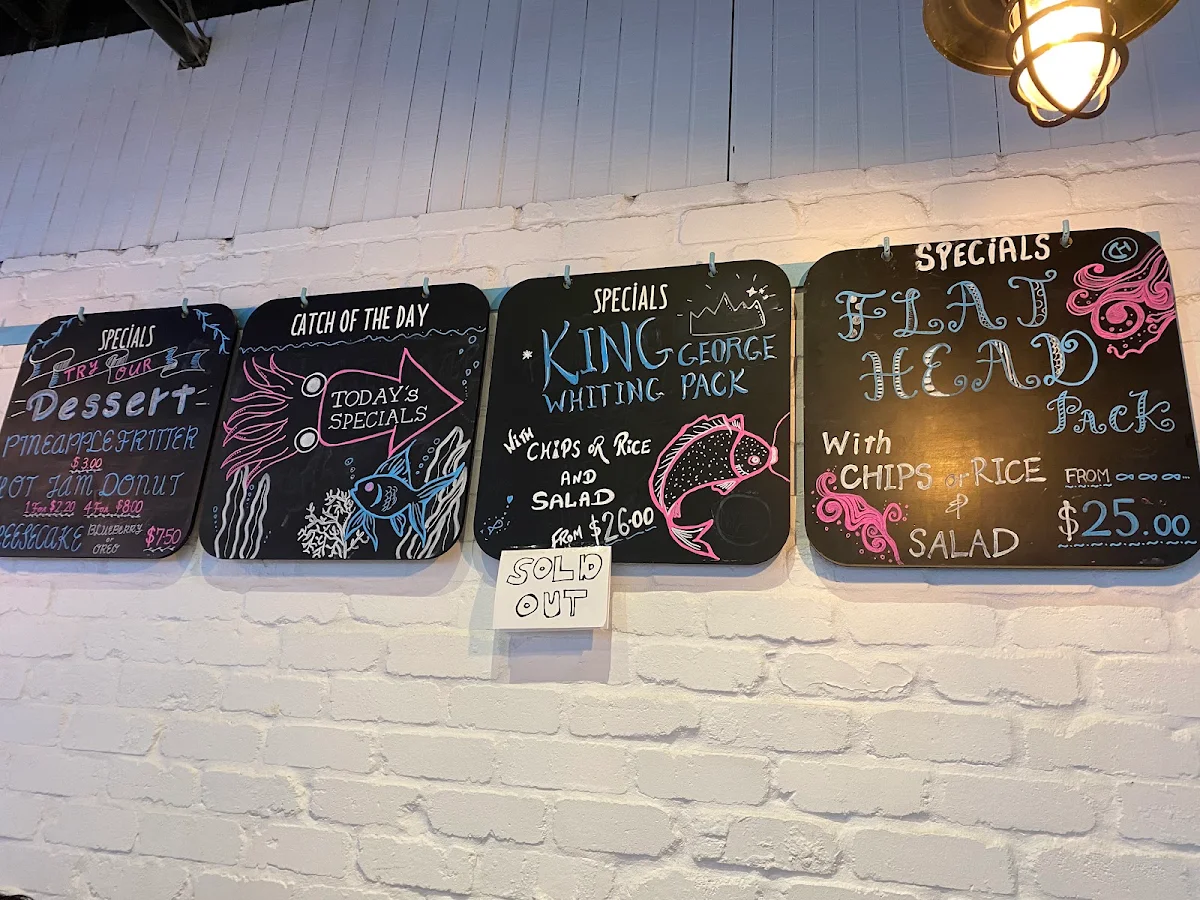 SPECIALS
TRY OUR
Dessert
PINEAPPLE FRITTER
$3.00
HOT JAM DONUT
1 For $2.20 4 For $8.00
CHEESECAKE BLUEBERRY
or
OREO
$7.50
CATCH OF THE DAY
TODAY's
SPECIALS
SPECIALS
KING GEORGE
WHITING PACK
WITH
CHIPS OR RICE
AND
SALAD
FROM $26.00
SOLD
OUT
SPECIALS
FLAT
HEAD
PACK
With
CHIPS or RICE
&
SALAD
FROM
$25.00